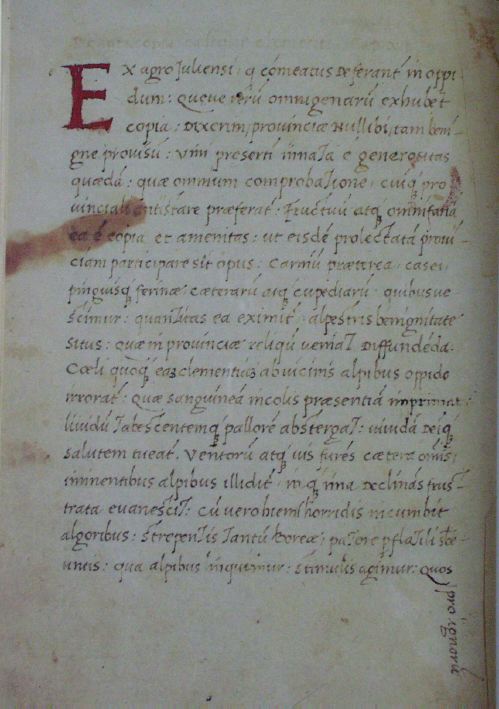 Ex agro Juliensi: q comeatus deferant in oppi
dum: Quove rerū omnigenarū exhubet
copia: Dixerim, provinciæ nullibi, tam beni
gne provisū: vini preserti innata e generositas
quædā: quæ omnium comprobatione, cuiq pro
vinciali antistare præferat: Fructuū atq
ea ē copia et amenitas: ut eisdē prolectatā provī
ciam participare sit opus: Carniū præterea, casei,
pinguisq ferinæ cæterarū atq cupediarū, quibusve
: quantitas ea eximit, alpestris benignitate
situs: quæ in provinciæ reliqū veniat diffundēda.
Cœli quoq eaꝫ clementiaꝫ ab vicinis alpibus oppido
irrorat: Quæ sanguineā incolis præsentiā imprimat:
lividū tabescentemq pallorē abstergat: vividā deiq
salutem tueat. Ventorū atq vis furēs cætera omīs:
iminentibus alpibus illidit, in q una declinās frus
trata evanescit: Cū vero hiems horridis incumbit
algoribus: strepentis tantū boreæ:
: qua alpibus: stimulis agimur: Quos
pro ignorū